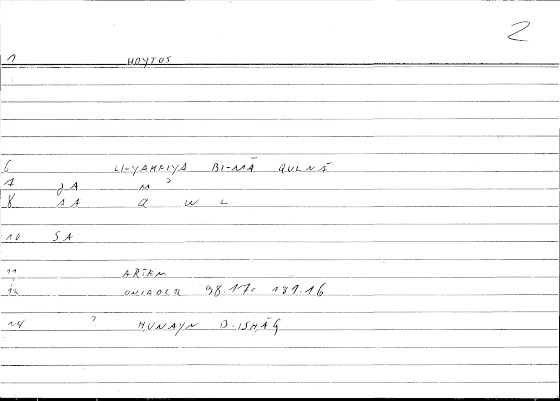 2
1 HOYTOS
6 LI-YAKFIYA BI-MĀ QULNĀ
7 gA M ʾ
8 AA Q W L
10 SA
11 ARTEM
12 ONIROCR 98.17, 187.16
14 ? HUNAYN B.ISHĀQ